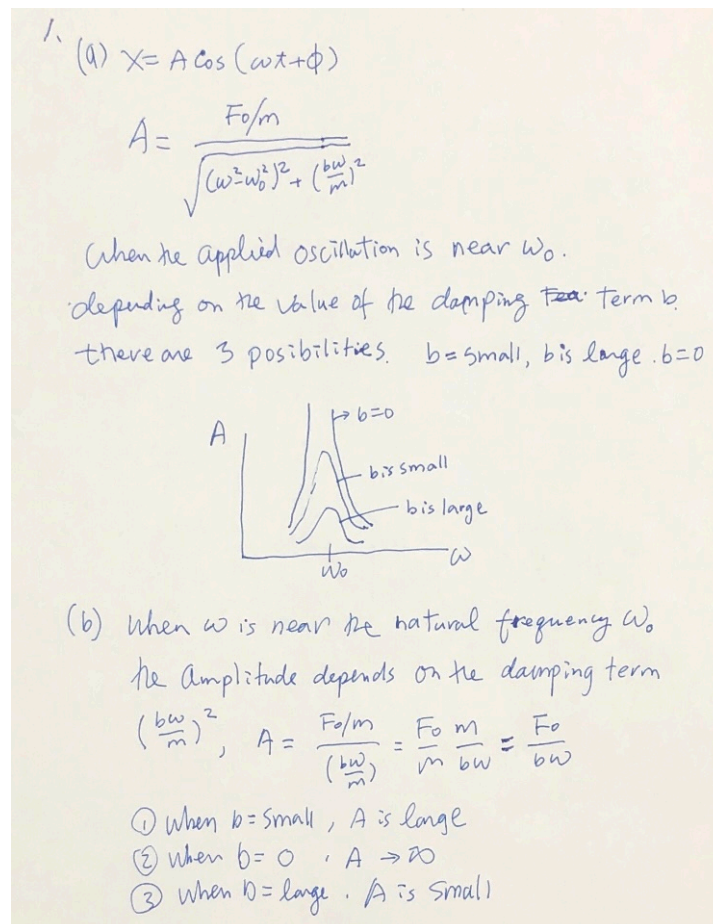 1.
(a) X = A Cos (ωt+ϕ)
A = Fo/m / √((ω²-ω₀²)² + (bω/m)²)
When the applied oscillation is near ω₀.
depending on the value of the damping term b.
there are 3 posibilities. b = small, b is large. b=0
A
b=0
b is small
b is large
ω
ω₀
(b) When ω is near the natural frequency ω₀
the Amplitude depends on the damping term
(bω/m)², A = Fo/m / (bω/m) = Fo/m m/bω = Fo/bω
① When b = small, A is large
② When b = 0, A → ∞
③ When b = large. A is small